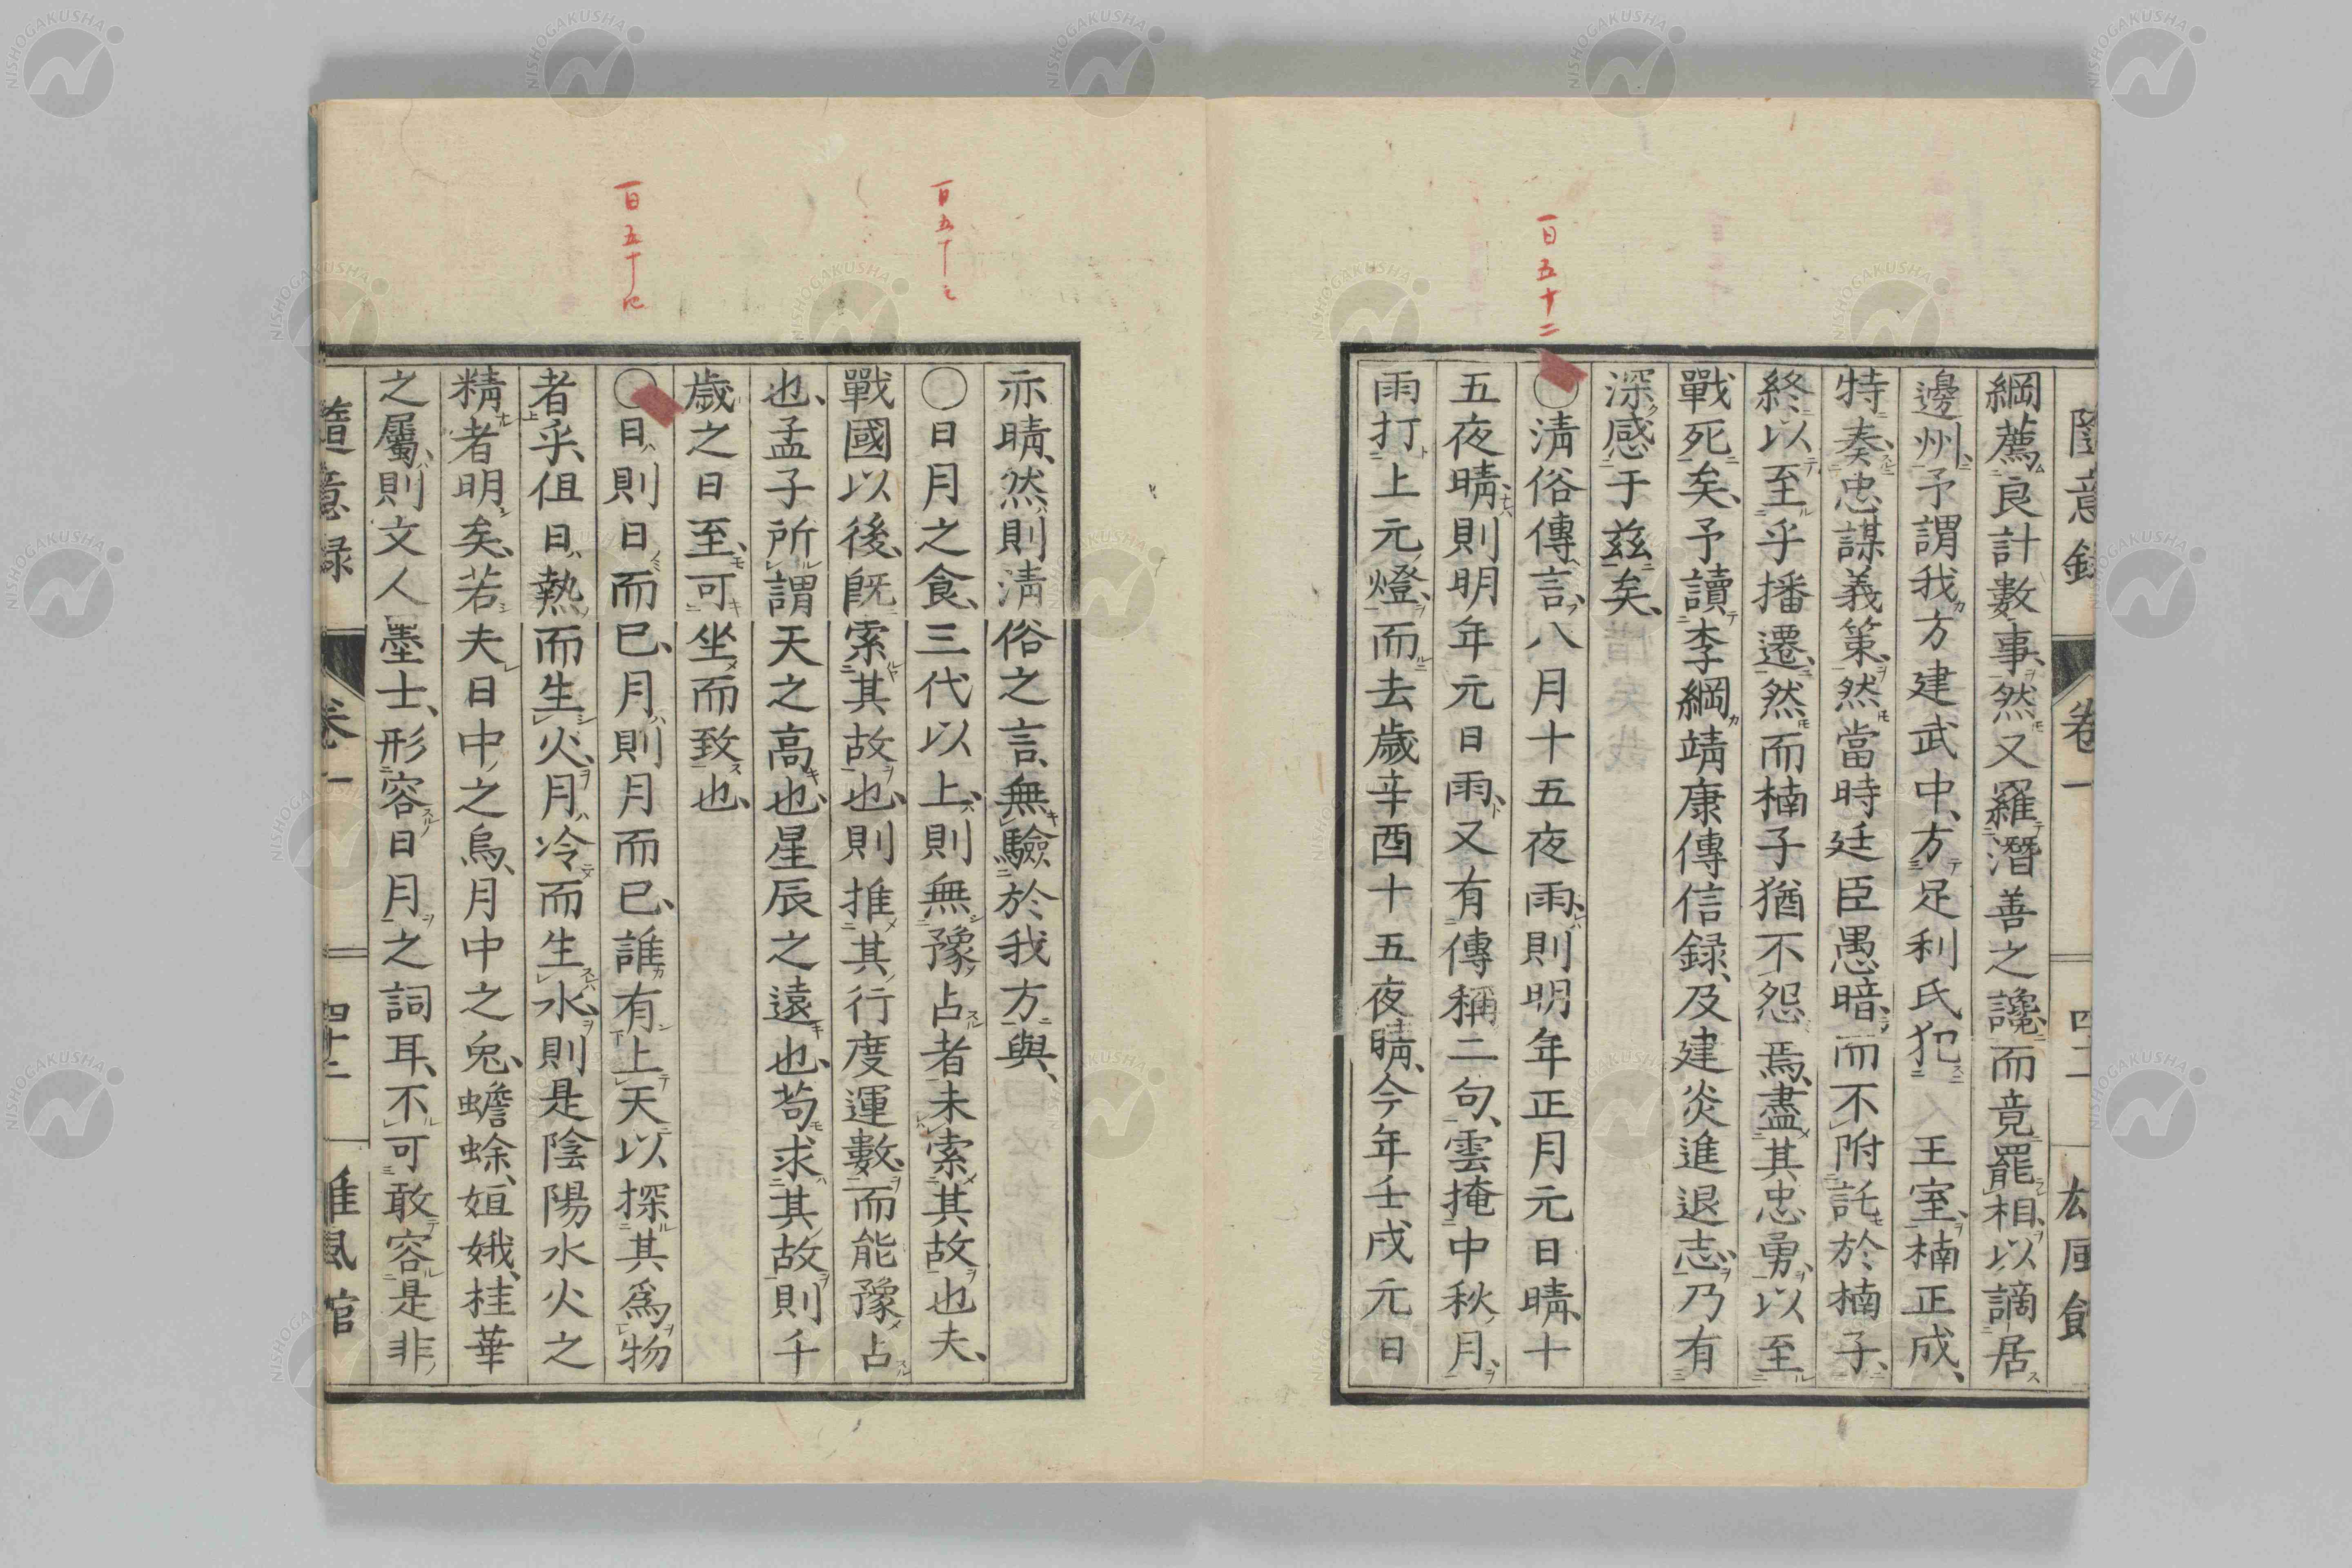 百五十二
綱薦良計數事然又羅潛善之讒而竟罷相以謫居
邊州予謂我方建武中方足利氏犯　王室楠正成
特奏忠謀義策然當時廷臣愚暗而不附託於楠子
終以至乎播遷然而楠子猶不怨焉盡其忠勇以至
戰死矣予讀李綱靖康傳信録及建炎進退志乃有
深感于茲矣
○淸俗傳言八月十五夜雨則明年正月元日晴十
五夜晴則明年元日雨又有傳稱二句雲掩中秋月
雨打上元燈而去歲辛酉十五夜晴今年壬戌元日
百五十三
百五十四
亦晴然則淸俗之言無驗於我方與
○日月之食三代以上則無豫占者未索其故也夫
戰國以後既索其故也則推其行度運數而能豫占
也孟子所謂天之高也星辰之遠也苟求其故則千
歲之日至可坐而致也
○日則日而已月則月而已誰有上天以探其爲物
者乎但日熱而生火月冷而生水則是陰陽水火之
精者明矣若夫日中之烏月中之兔蟾蜍姮娥桂華
之屬則文人墨士形容日月之詞耳不可敢容是非
隨意録　卷一　四十二